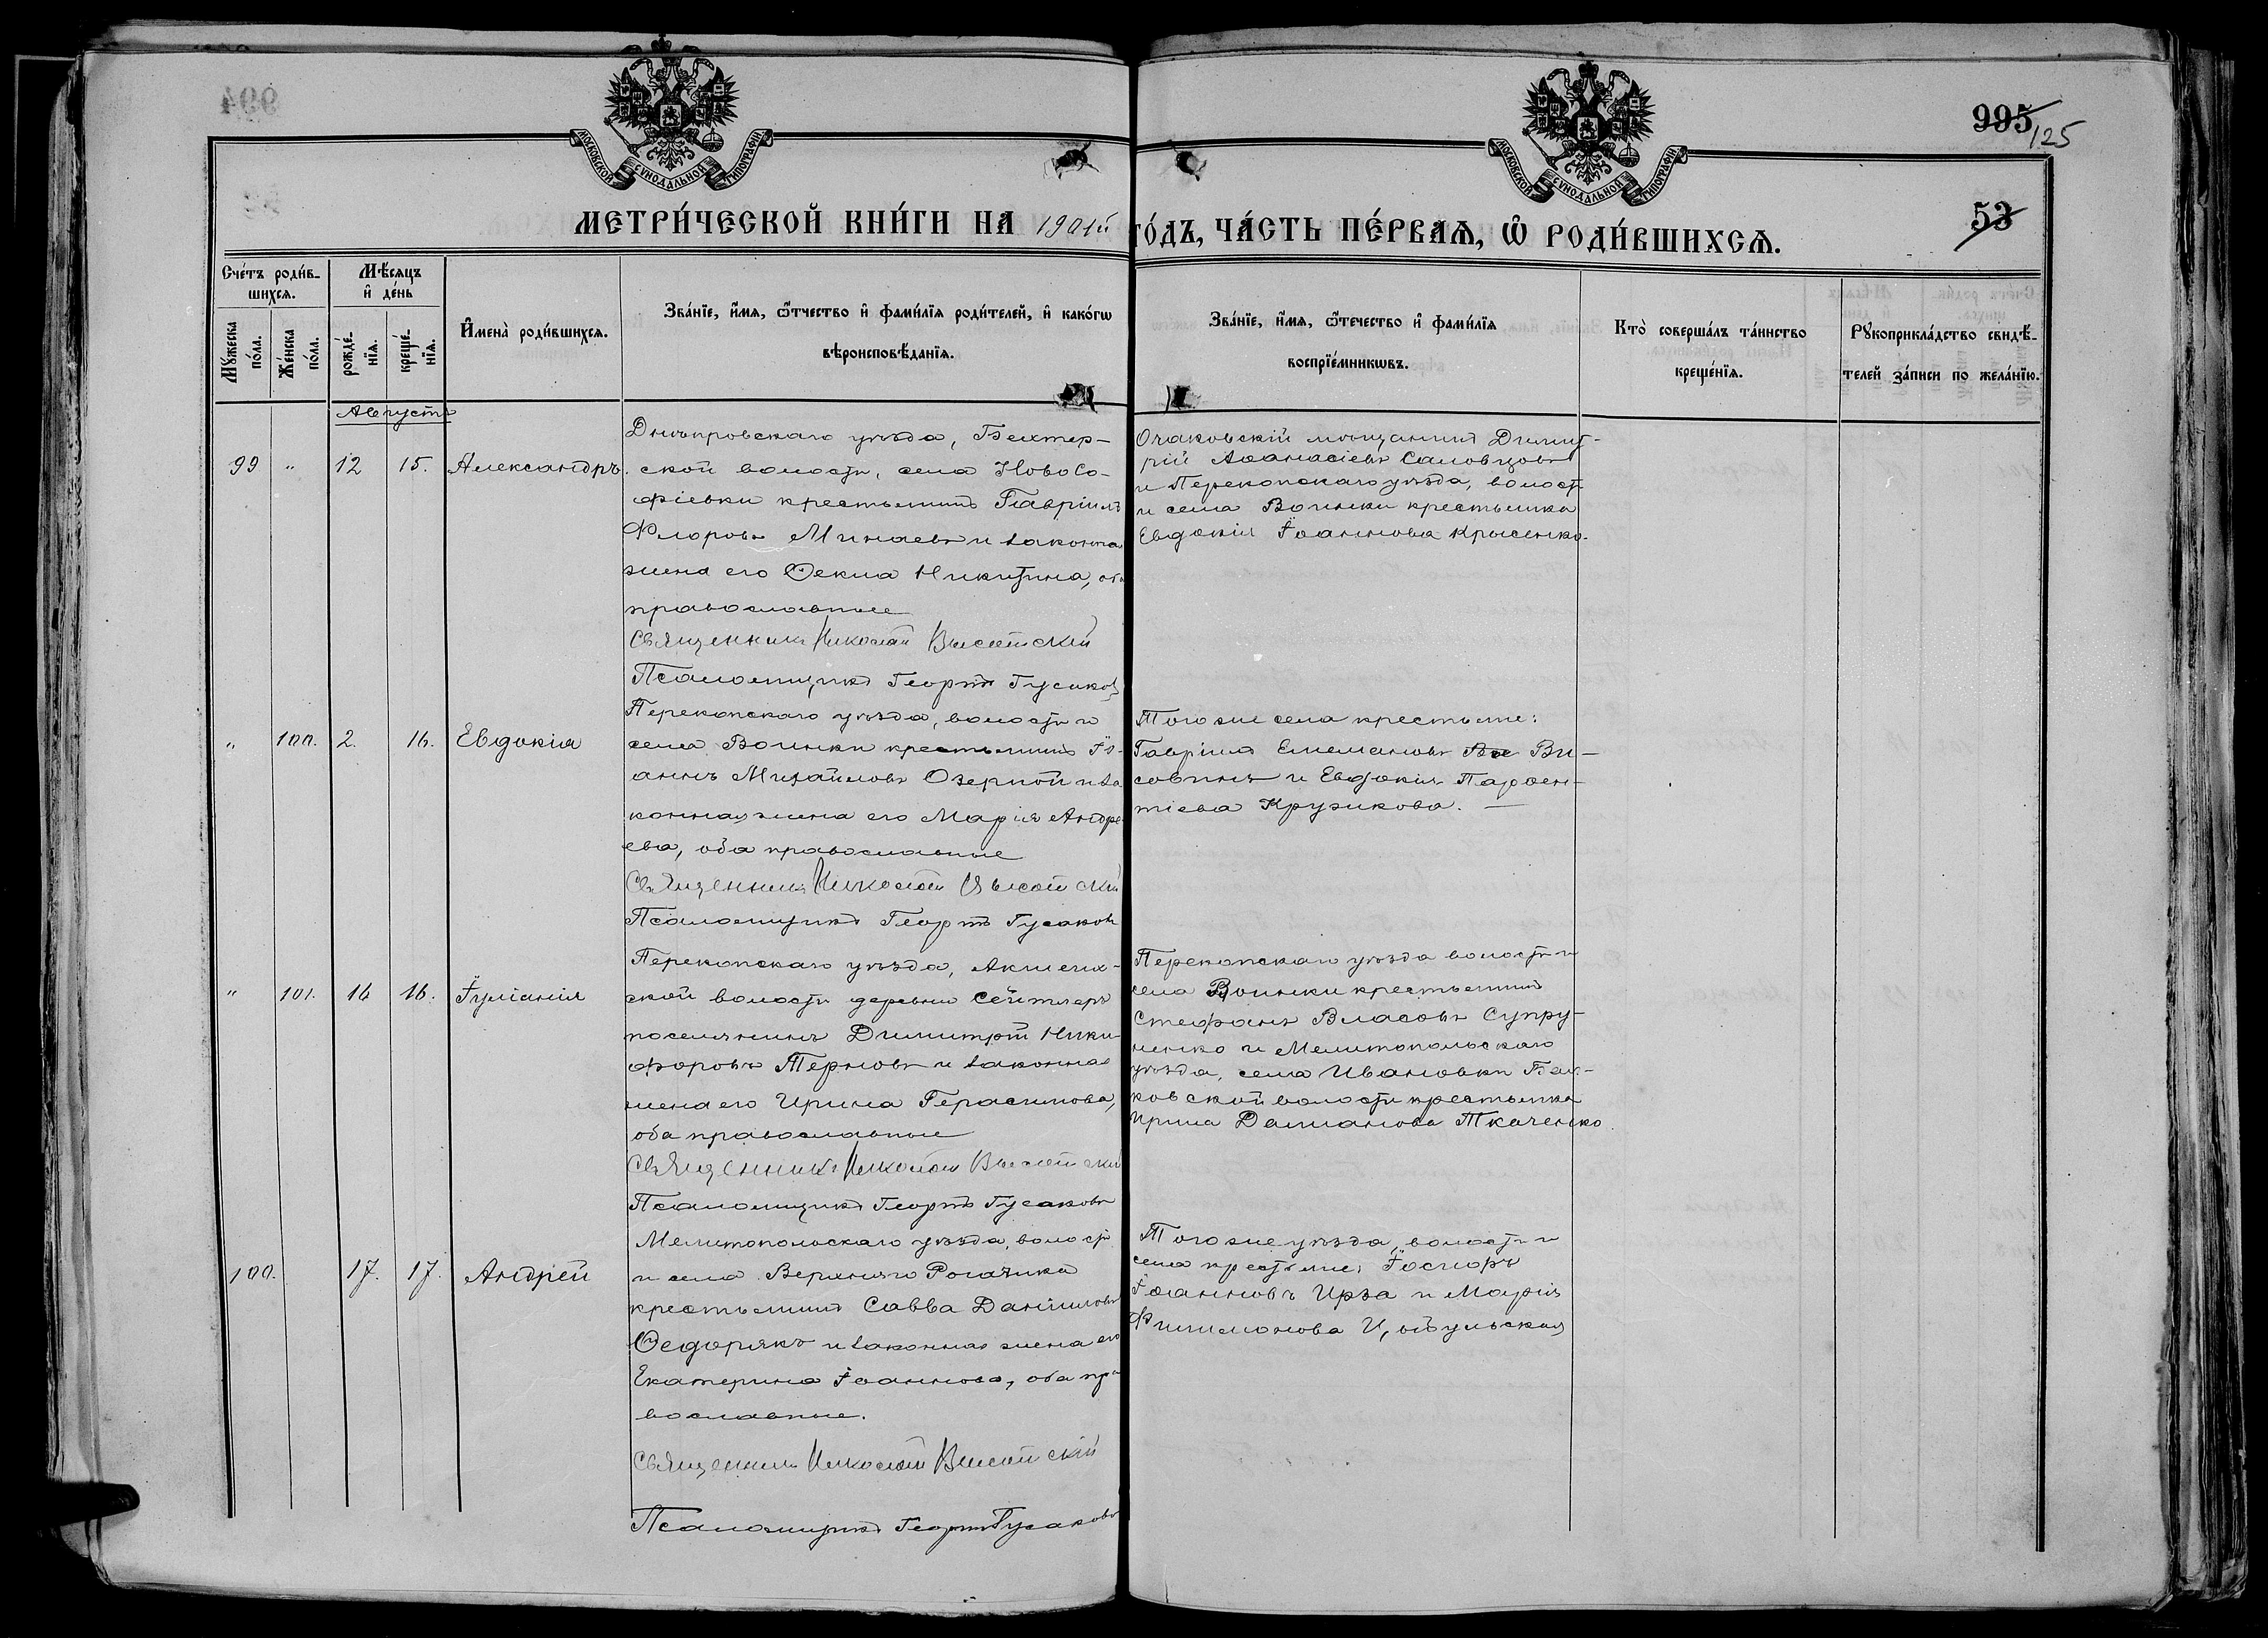 995
125
53
МОСКОВСКОЙ СУНОДАЛЬНОЙ ТИПОГРАФІИ
МОСКОВСКОЙ СУНОДАЛЬНОЙ ТИПОГРАФІИ
МЕТРИ́ЧЕСКОЙ КНИ́ГИ НА 1901й ГО́ДЪ, ЧА́СТЬ ПЕ́РВАѦ, Ѡ҆ РОДИ́ВШИХСѦ.
Сче́тъ роди́в-
шихсѧ.
Мꙋ́жеска по́ла.
Же́нска по́ла.
Мѣ́сѧцъ
и҆ де́нь
рожде́-
нїѧ.
креще́-
нїѧ.
И҆мена̀ роди́вшихсѧ.
Зва́нїе, и҆́мѧ, ѻ҆́тчество и҆ фами́лїѧ роди́телей, и҆ како́гѡ
вѣроисповѣ́данїѧ.
Зва́нїе, и҆́мѧ, ѻ҆́течество и҆ фами́лїѧ
воспрїе́мникѡвъ.
Кто̀ соверша́лъ та́инство
креще́нїѧ.
Рꙋкоприкла́дство свидѣ́-
телей за́писи по жела́нїю.
Августъ
99 " 12 15. Александръ.
Днѣпровскаго уѣзда, Бехтер-
ской волости, села НовоСо-
фіевки крестьянинъ Гавріилъ
Флоровъ Минаевъ и законная
жена его Ѳекла Никитина, оба
православные
Священникъ Николай Высотскій
Псаломщикъ Георгій Гусаковъ
Очаковскій мѣщанинъ Димит-
рій Аѳанасіевъ Саловцовъ
и Перекопскаго уѣзда, волости
и села Воинки крестьянка
Евдокія Іоаннова Крысенко.
" 100. 2. 16. Евдокія
Перекопскаго уѣзда, волости и
села Воинки крестьянинъ Іо-
аннъ Михайловъ Озерной и за
конная жена его Марія Андре
ева, оба православные
Священникъ Николай Высотскій
Псаломщикъ Георгій Гусаковъ
Того же села крестьяне:
Гавріилъ Емеліановъ Ви-
совинъ и Евдокія Парѳен-
тіева Крузикова. —
" 101. 16 16. Іуліанія
Перекопскаго уѣзда, Акшеих-
ской волости деревни Сейтлеръ
поселянинъ Димитрій Ники-
форовъ Терновъ и законная
жена его Ирина Герасимова,
оба православные
Священникъ Николай Высотскій
Псаломщикъ Георгій Гусаковъ
Перекопскаго уѣзда волости и
села Воинки крестьянинъ
Стефанъ Власовъ Супру-
ненко и Мелитопольскаго
уѣзда, села Ивановки Бел-
ковской волости крестьянка
Ирина Даміанова Ткаченко.
100. 17. 17. Андрей
Мелитопольскаго уѣзда, волости
и села Верхняго Рогачика
крестьянинъ Савва Даніиловъ
Ѳедорякъ и законная жена его
Екатерина Іоаннова, оба пра
вославные.
Священникъ Николай Высотскій
Псаломщикъ Георгій Гусаковъ
Того же уѣзда, волости и
села крестьяне: Іосифъ
Іоанновъ Ирза и Марія
Филимонова Цыбульская